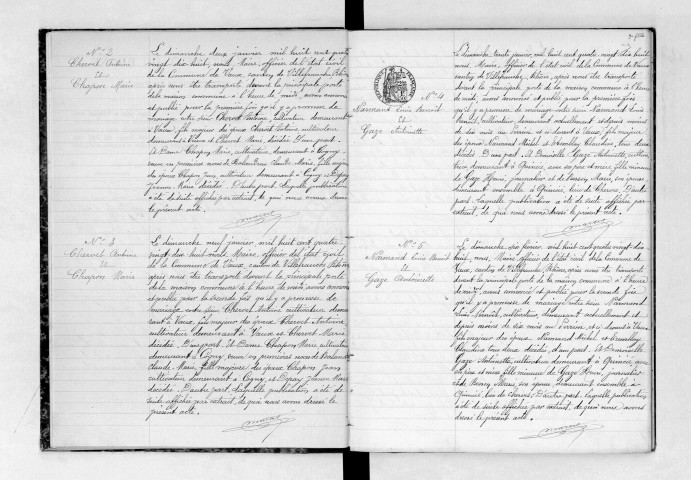 Nº 2
Chervet Antoine
et
Chapon Marie
Le dimanche deux janvier mil huit cent quatre
vingt dix huit, nous, Maire, officier de l'état civil
de la Commune de Vaux, canton de Villefranche, Rhône,
après nous être transporté devant la principale porte
de la maison commune à l'heure de midi, avons annoncé
et publié pour la première fois qu'il y a promesse de
mariage entre Chervet Antoine, cultivateur demeurant
à Vaux, fils majeur des époux Chervet Antoine cultivateur
demeurant à Vaux et Chervet Marie, décédée. D'une part.
Et Dame Chapon Marie, cultivatrice, demeurant à Cogny,
veuve en premières noces de Claude Marie, fille majeure
des époux Chapon Jean cultivateur demeurant à Cogny et
Jeanne Marie décédée. D'autre part. Laquelle publication
a été de suite affichée par extrait, de quoi nous avons dressé
le présent acte.
Nº 3
Chervet Antoine
et
Chapon Marie
Le dimanche neuf janvier mil huit cent quatre
vingt dix huit nous Maire, officier de l'état civil
de la Commune de Vaux, canton de Villefranche, Rhône,
après nous être transporté devant la principale porte
de la maison commune à l'heure de midi avons annoncé
et publié pour la seconde fois qu'il y a promesse de
mariage entre Chervet Antoine cultivateur demeurant
à Vaux, fils majeur des époux Chervet Antoine
cultivateur demeurant à Vaux et Chervet Marie
décédée. D'une part. Et Dame Chapon Marie cultivatrice
demeurant à Cogny, veuve en premières noces de
Claude Marie, fille majeure des époux Chapon Jean
cultivateur demeurant à Cogny, et Jeanne Marie
décédée. D'autre part. Laquelle publication a été de
suite affichée par extrait, de quoi nous avons dressé le
présent acte.
Nº 4
Namand Louis Benoît
et
Gaze Antoinette
Le dimanche trente janvier, mil huit cent quatre vingt dix huit
nous, Maire, officier de l'état civil de la Commune de Vaux
canton de Villefranche, Rhône, après nous être transporté
devant la principale porte de la maison commune à l'heure
de midi, avons annoncé et publié pour la première fois
qu'il y a promesse de mariage entre Namand Louis
Benoît, cultivateur, demeurant actuellement et depuis moins
de six mois au et à Vaux, fils majeur
des époux Namand Michel et Claudine, tous deux
décédés. D'une part. Et Demoiselle Gaze Antoinette, cultiva-
trice demeurant à Quincié, avec ses père et mère, fille mineure
de Gaze Henri, journalier et de Marie, son épouse
demeurant ensemble à Quincié, lieu de Cherves. D'autre
part. Laquelle publication a été de suite affichée par
extrait, de quoi nous avons dressé le présent acte.
Nº 5
Namand Louis Benoît
et
Gaze Antoinette
Le dimanche six février, mil huit cent quatre vingt dix
huit, nous, Maire, officier de l'état civil de la Commune de Vaux,
canton de Villefranche, Rhône, après nous être transporté
devant la principale porte de la maison commune à l'heure
de midi, avons annoncé et publié pour la seconde fois
qu'il y a promesse de mariage entre Namand
Louis Benoît, cultivateur, demeurant actuellement et
depuis moins de six mois au et à Vaux
fils majeur des époux Namand Michel et
Claudine tous deux décédés, d'une part. Et Demoiselle
Gaze Antoinette, cultivatrice demeurant à Quincié, avec
ses père et mère fille mineure de Gaze Henri, journalier
et Marie, son épouse demeurant ensemble à
Quincié, lieu de Cherves. D'autre part. Laquelle publication
a été de suite affichée par extrait, de quoi nous avons
dressé le présent acte.